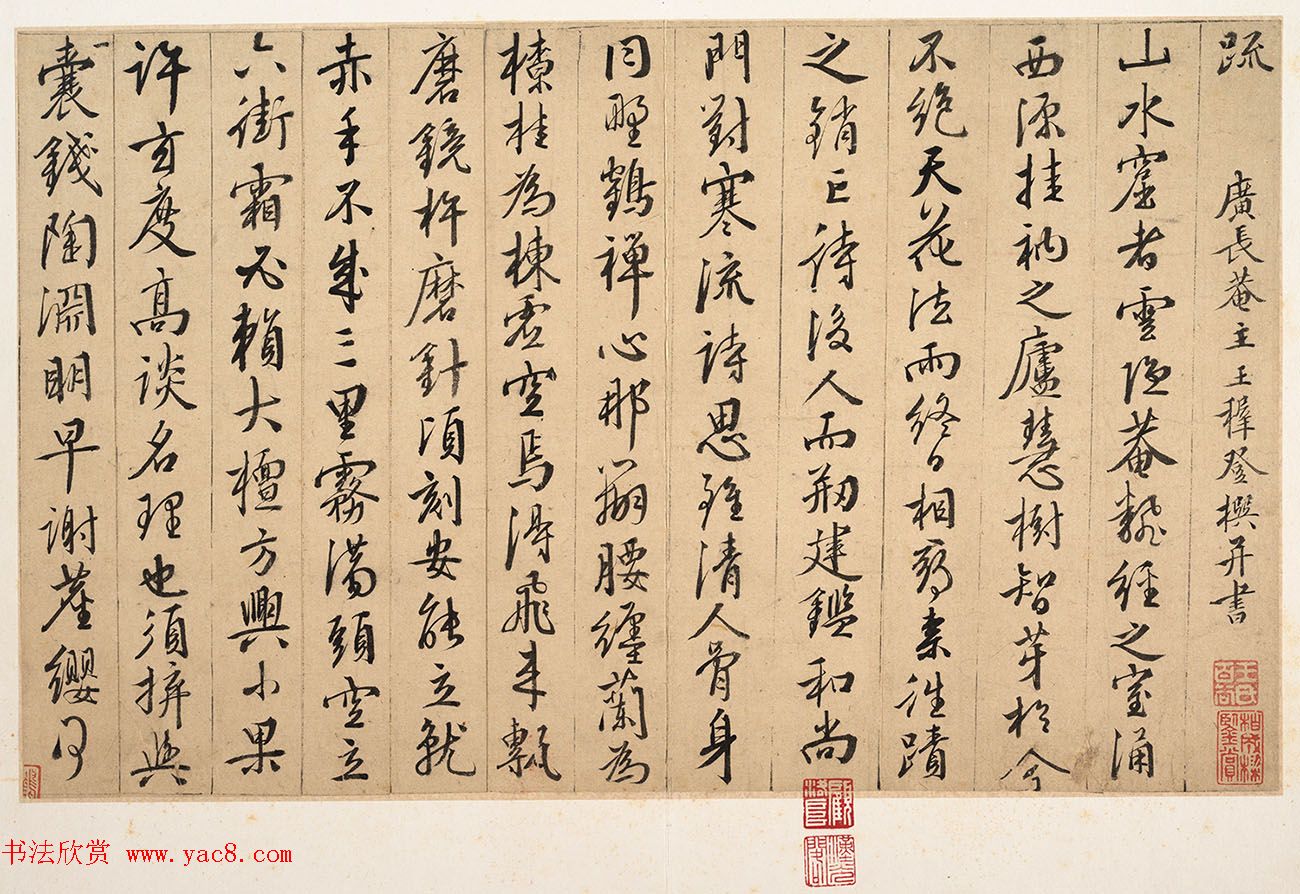 疏 廣長菴主王穉登撰并書
山水窟者雲隱菴翻經之室涌
西源挂衲之廬慧樹智芽於今
不絕天花法雨終日相尋柰往蹟
之銷亡待後人而剏建鑑和尚
門對寒流詩思雖清人骨身
同野鶴禪心那腰纏蘭為
橑桂為棟虛空焉得飛來甎
磨鏡杵磨針頃刻安能立就
赤手不成三里霧滿頭空立
六街霜必賴大檀方興小果
許玄度高談名理也須拚與
一囊錢陶淵明早謝簪纓何
書法欣賞 www.yac8.com